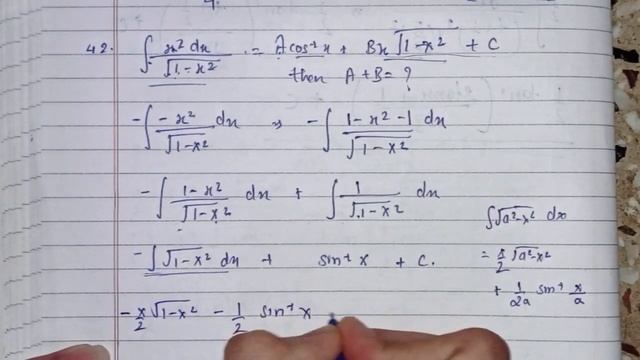 42. ∫ x² dx / √1-x² = A cos⁻¹ x + Bx √1-x² + C
then A+B = ?
-∫ -x² / √1-x² dx ⇒ -∫ 1-x²-1 / √1-x² dx
-∫ 1-x² / √1-x² dx + ∫ 1 / √1-x² dx
∫√a²-x² dx
-∫ √1-x² dx + sin⁻¹ x + C.
= x/2 √a²-x²
+ 1/2a sin⁻¹ x/a
-x/2 √1-x² - 1/2 sin⁻¹ x